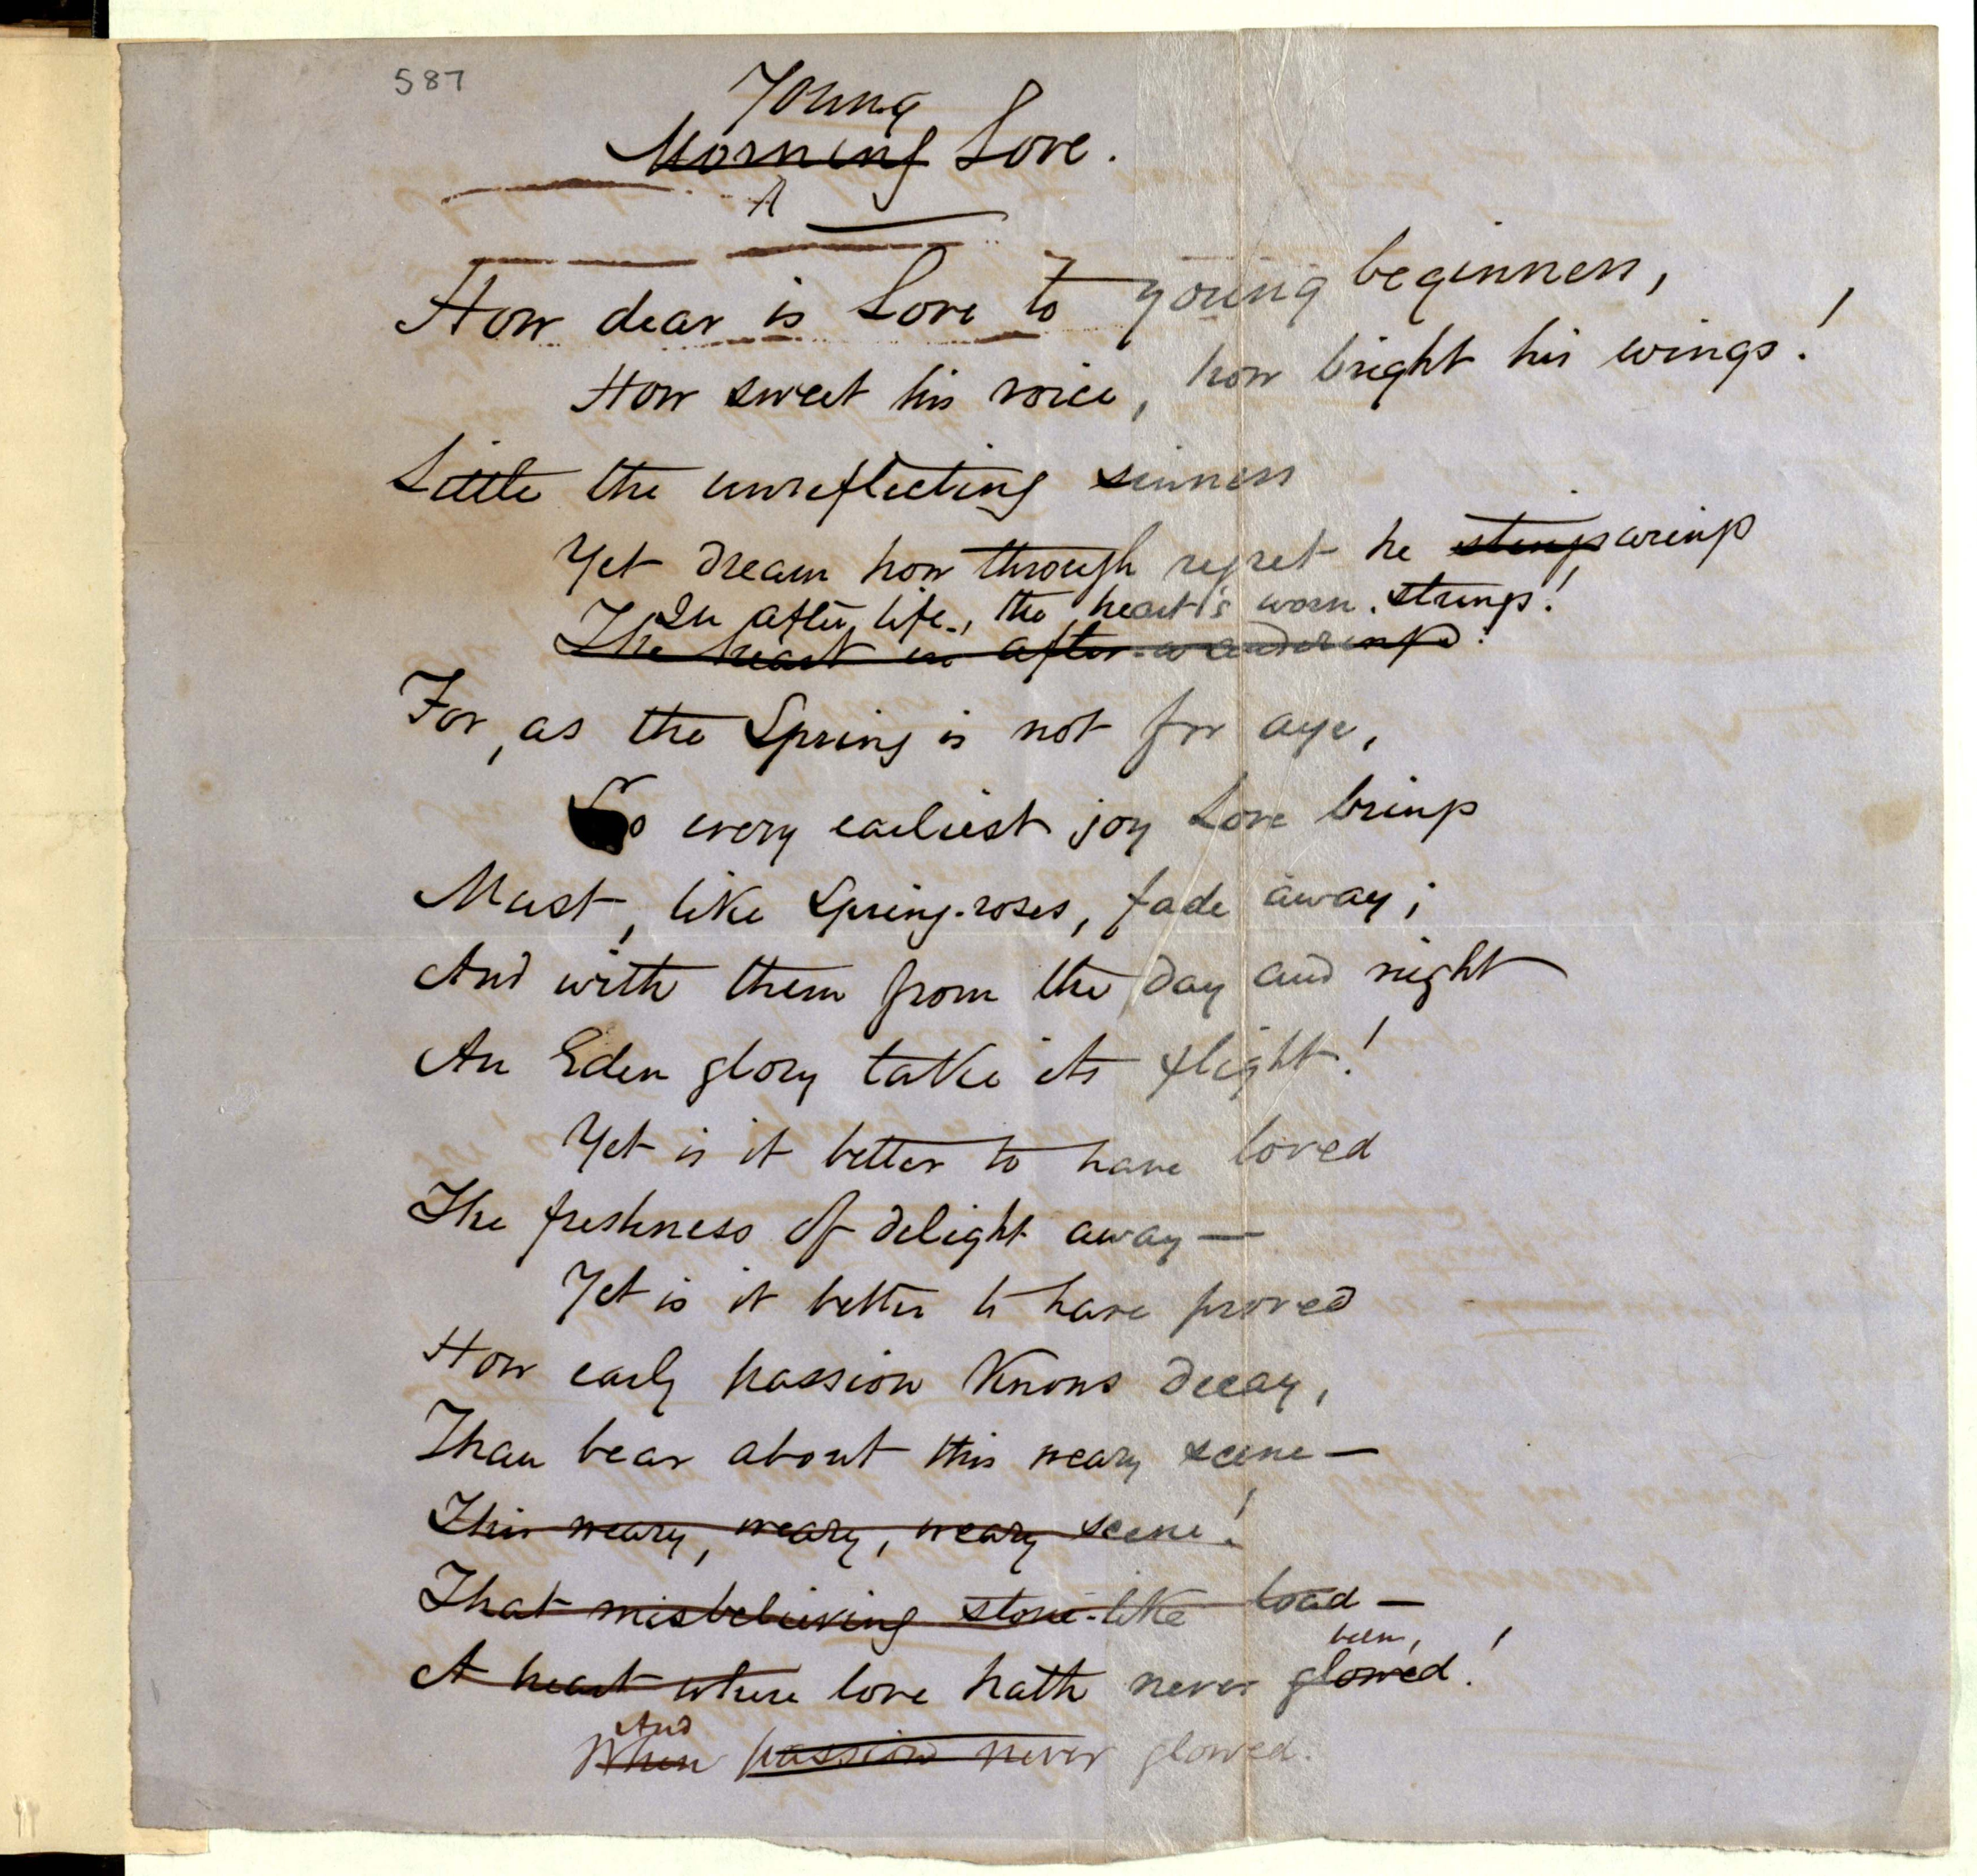 587
Young
Morning Love.
How dear is Love to young beginners,
How sweet his voice, how bright his wings!
Little the unreflecting sinners
Yet dream how through regret he stings wrings
In after life, the heart's worn strings!
The heart in after-wanderings!
For, as the Spring is not for aye,
So every earliest joy Love brings
Must, like Spring-roses, fade away;
And with them from the day and night
An Eden glory take its flight!
Yet is it better to have loved
The freshness of delight away—
Yet is it better to have proved
How early passion knows decay,
Than bear about this weary scene—
This weary, weary, weary scene!
That misbelieving stone-like load—
been,
A heart where love hath never glowed!
And
When passion never glowed.